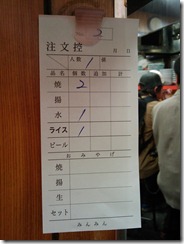 2
注文控 月 日
人数 1 様
品名 個数 追加 計
焼 2
揚
水 1
ライス 1
ビール
おみやげ
焼
揚
生
セット
みんみん